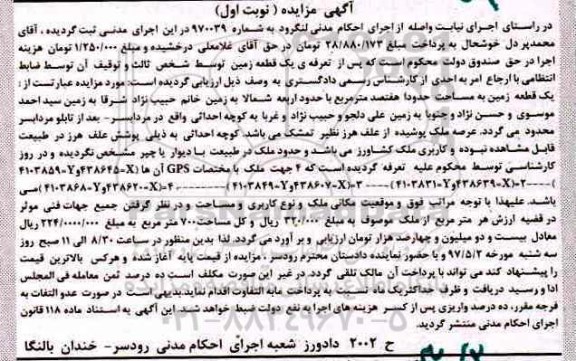 آگهی مزایده ( نوبت اول)
در راستای اجرای نیابت واصله از اجرای احکام مدنی لنگرود به شماره ۹۷۰۰۳۹ در این اجرای مدنی ثبت گردیده ، آقای
محمدپر دل خوشحال به پرداخت مبلغ ۲۸/۸۸۰/۱۷۳ تومان در حق آقای غلامعلی درخشیده و مبلغ ۱/۲۵۰/۰۰۰ تومان هزینه
اجرا در حق صندوق دولت محکوم است که پس از تعرفه ی یک قطعه زمین توسط شخص ثالث و توقیف آن توسط ضابط
انتظامی با ارجاع امر به احدی از کارشناس رسمی دادگستری به وصف ذیل ارزیابی گردیده است: مورد مزایده عبارتست از :
یک قطعه زمین به مساحت حدودا هفتصد مترمربع با حدود اربعه شمالا به زمین خانم حبیب نژاد شرقا به زمین سید احمد
موسوی و حسن نژاد و جنوبا به زمین علی دلجو و حبیب نژاد و غربا به کوچه احداثی واقع در مردابسر- بعد از تابلو مردابسر
محدود می گردد. عرصه ملک پوشیده از علف هرز نظیر تمشک می باشد کوچه احداثی به ذیلی پوشش علف هرز در طبیعت
قابل مشاهده نبوده و کاربری ملک کشاورز می باشد و حدود ملک در طبیعت با دیوار یا چپر مشخص نگردیده و در روز
کارشناسی توسط محکوم علیه تعرفه گردیده است که ۴ جهت ملک با مختصات GPS آن ها (X=۴۳۸۶۴۵و۴۱۰۳۸۵۹
)----۲=(X=۴۳۸۶۳۹و۴۱۰۳۸۳۱۷) ----۳=(X=۴۳۸۶۰۷و۴۱۰۳۸۴۹۷)----۴=(X=۴۳۸۶۲۰و۴۱۰۳۸۶۸۷)می
باشد. علیهذا با توجه مراتب فوق و موقعیت مکانی ملک و نوع کاربری و مساحت و در نظر گرفتن جمیع جهات فنی موثر
در قضیه ارزش هر متر مربع از ملک موصوف به مبلغ ۳۲۰/۰۰۰ ریال و کل مساحت۷۰۰ متر مربع به مبلغ ۲۲۴/۰۰۰/۰۰۰ ریال
معادل بیست و دو میلیون و چهارصد هزار تومان ارزیابی و بر آورد می گردد. لذا بدین منظور در ساعت ۸/۳۰ الی ۱۱ صبح روز
سه شنبه مورخه ۹۷/۵/۲ با حضور نماینده دادستان محترم رودسر ، مزایده از قیمت پایه آغاز شده و هرکس بالاترین قیمت
را پیشنهاد کند می تواند با پرداخت آن مالک تلقی گردد. در غیر این صورت مکلف است ده درصد ثمن معامله فی المجلس
ادا و رسید دریافت و ظرف حداکثریک ماه نسبت به پرداخت مابه التفاوت اقدام نماید.بدیهی است در صورت عدو التفات به
فرجه مقرر، ده درصد واریزی پس از کسر هزینه های اجرای به نفع دولت ضبط خواهد شد. این آگهی به استناد ماده ۱۱۸ قانون
اجرای احکام مدنی منتشر گردید.
ح ۲۰۰۲ دادورز شعبه اجرای احکام مدنی رودسر- خندان بالنگا
۰۲۱-۸۸۳۴۹۶۷۰-۵